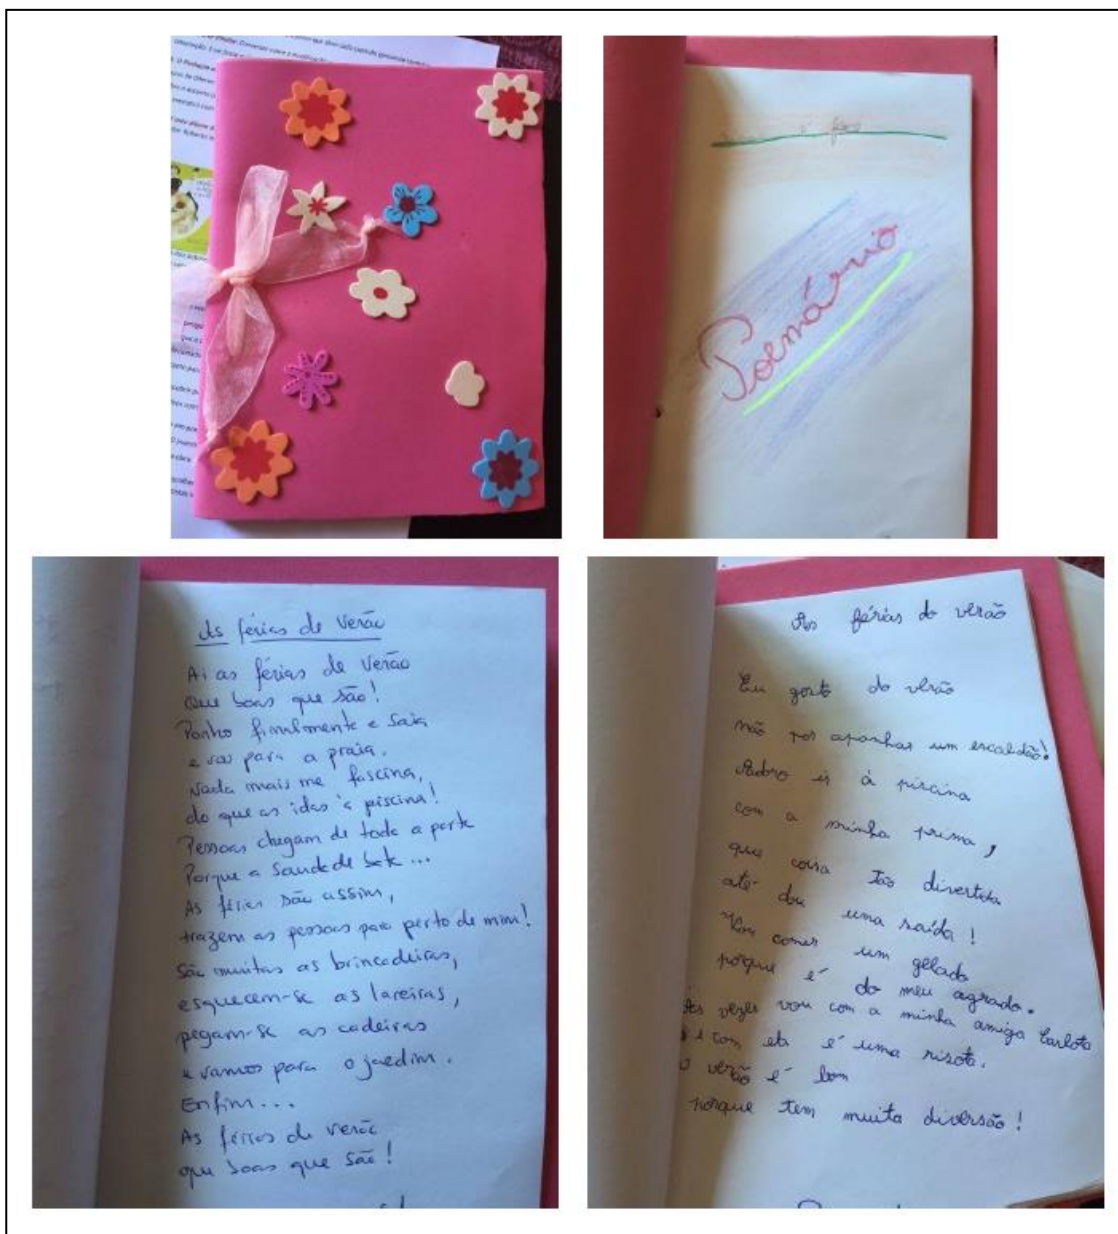 Poemário
As férias de verão
Ai as férias de verão
Que boas que são!
Ponho finalmente a saia
e vou para a praia.
Nada mais me fascina,
do que as idas à piscina!
Pessoas chegam de toda a parte
Porque a saudade bate...
As férias são assim,
trazem as pessoas para perto de mim!
São muitas as brincadeiras,
esquecem-se as lareiras,
pegam-se as cadeiras
e vamos para o jardim.
Enfim...
As férias de verão
que boas que são!
As férias do verão
Eu gosto do verão
não por apanhar um escaldão!
Adoro ir à piscina
com a minha prima,
que coisa tão divertida
até dou uma saída!
Vou comer um gelado
porque é do meu agrado.
Às vezes vou com a minha amiga Carlota
e com ela é uma risota.
O verão é bom
porque tem muita diversão!